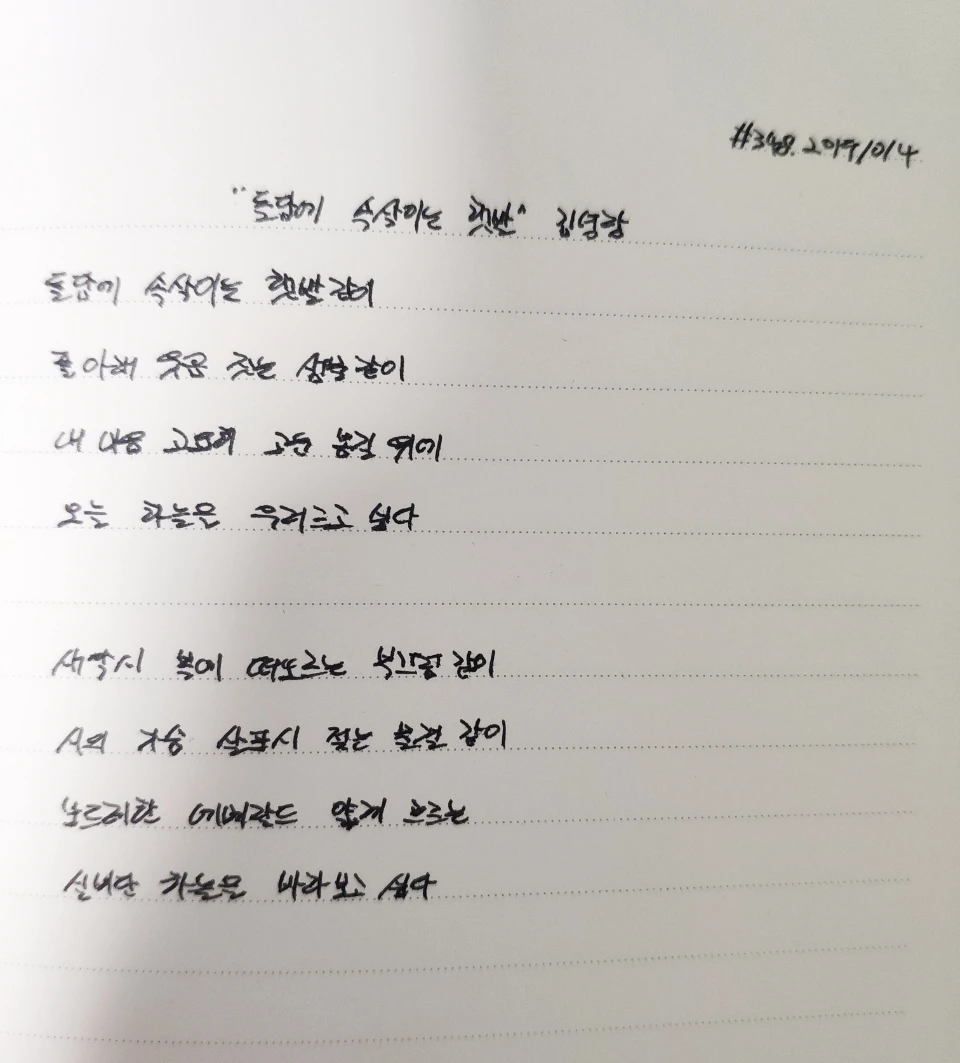 #348. 2019/01/4
"돌담에 속삭이는 햇발" 김영랑
돌담에 속삭이는 햇발 같이
풀 아래 웃음 짓는 샘물 같이
내 마음 고요히 고은 봄길 위에
오늘 하늘을 우러르고 싶다
새악시 볼에 떠오르는 부끄럼 같이
시의 가슴 살포시 젖는 물결 같이
보드레한 에메랄드 얇게 흐르는
실비단 하늘을 바라보고 싶다